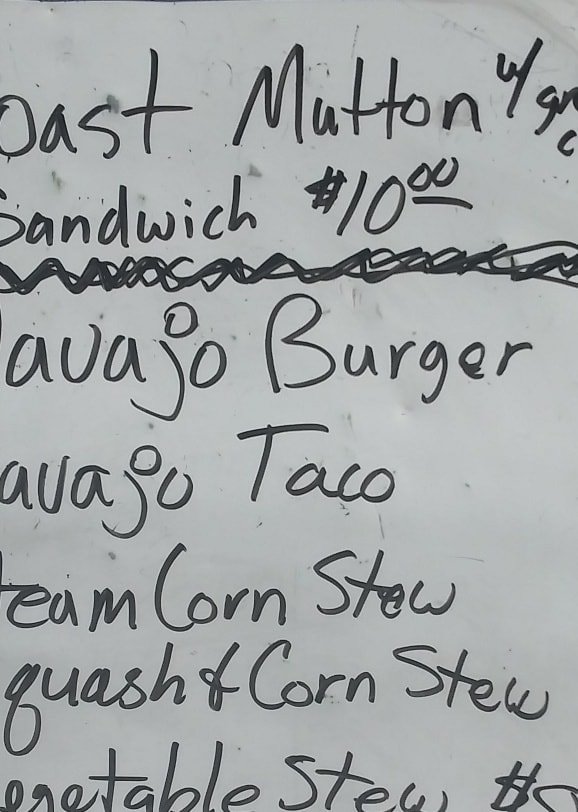 oast Mutton w/
Sandwich $10.00
Navajo Burger
avajo Taco
team Corn Stew
quash & Corn Stew
egetable Stew